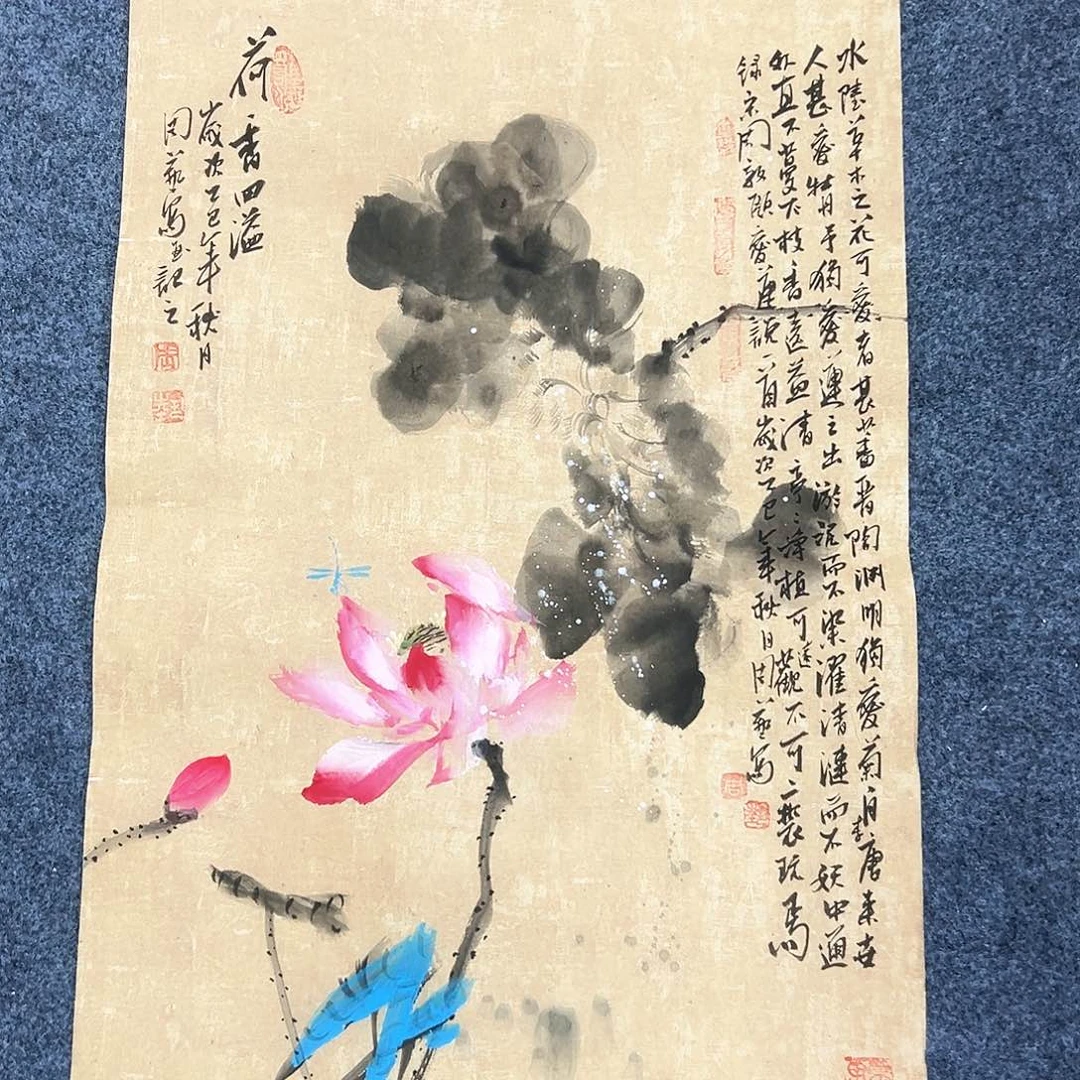 水陸草木之花可愛者甚蕃晋陶渊明獨愛菊自李唐来世
人甚愛牡丹予獨愛蓮之出淤泥而不染濯清漣而不妖中通
外直不蔓不枝香遠益清亭亭淨植可遠觀不可褻玩焉
録宋周敦頤愛蓮説一首歲次乙巳年秋月周藝寫
荷香四溢
歲次乙巳年秋月
周藝寫畫記之